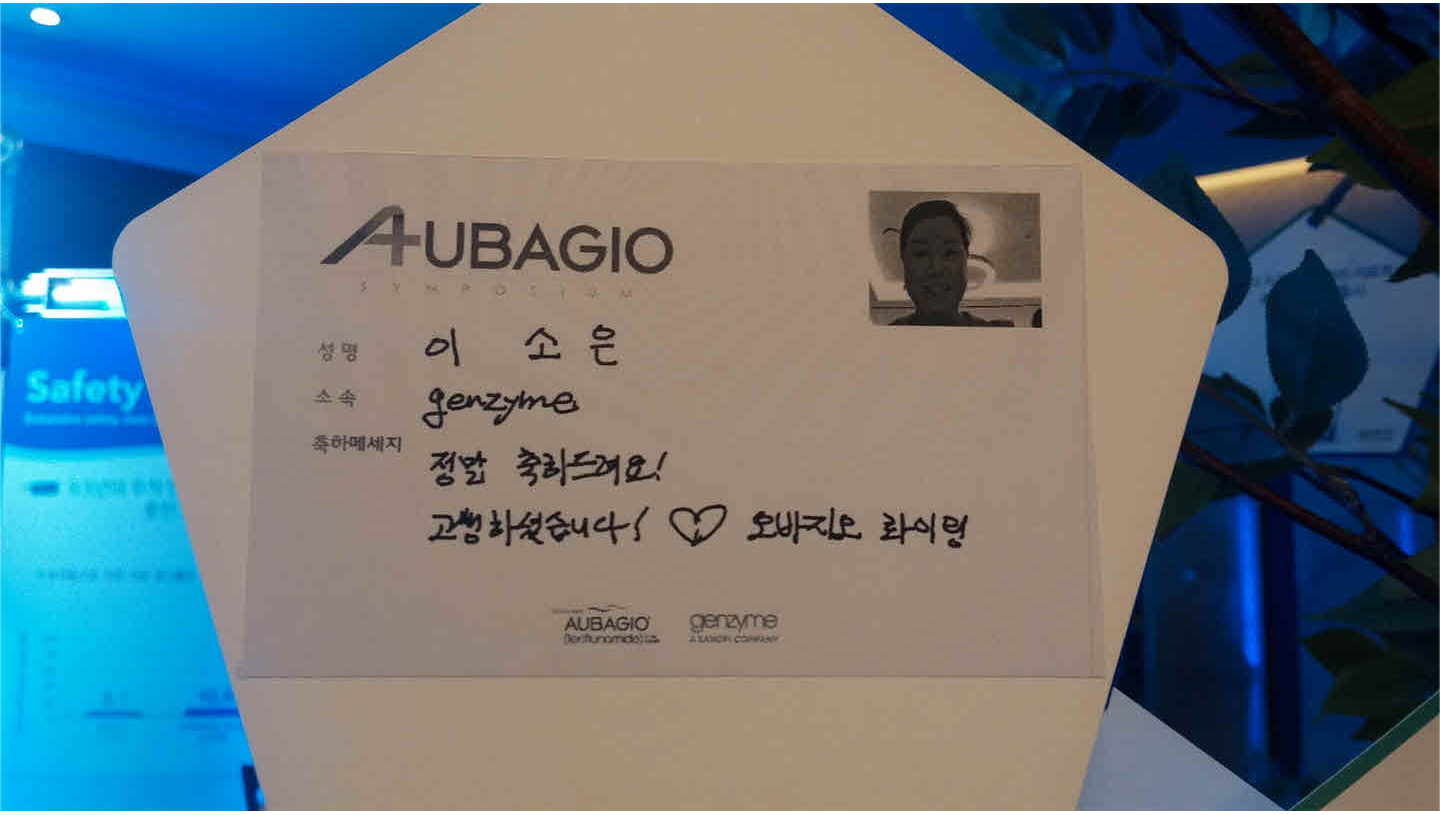 AUBAGIO
SYMPOSIUM
성명 이 소 은
소속 genzyme
축하메세지 정말 축하드려요!
고생하셨습니다! ♡ 오바지오 화이팅
AUBAGIO
(teriflunomide)
genzyme
A SANOFI COMPANY
Safety